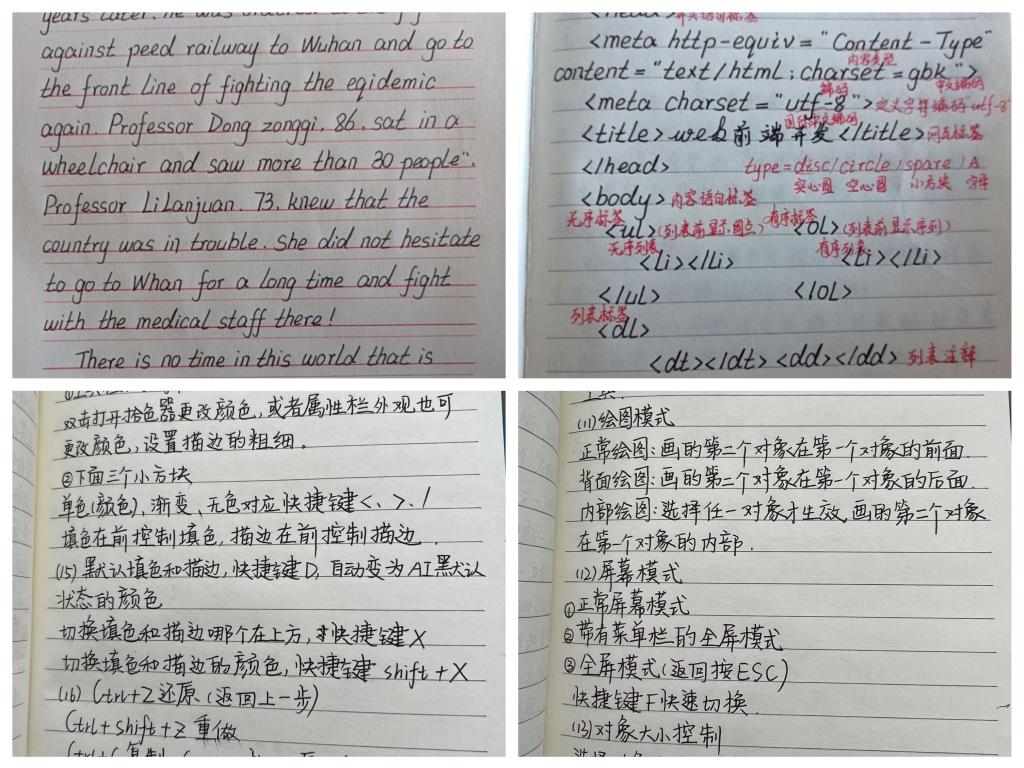 years later. he was
against peed railway to Wuhan and go to
the front Line of fighting the eqidemic
again. Professor Dong zonggi. 86. sat in a
wheelchair and saw more than 30 people".
Professor LiLanjuan. 73. knew that the
country was in trouble. She did not hesitate
to go to Whan for a long time and fight
with the medical staff there!
There is no time in this world that is
<head>开头语句标签
<meta http-equiv="Content-Type"
内容类型
content="text/html;charset=gbk">
编码 中文编码
<meta charset="utf-8">定义字符编码"utf-8"
国际中文编码
<title>web前端开发</title>网页标签
</head> type=disc/circle/spare/A
实心圆 空心圆 小方块 字母
<body>内容语句标签
无序标签 有序标签
<ul>(列表前显示圆点) <OL>(列表前显示序列)
无序列表 有序列表
<Li></Li> <Li></Li>
</ul> </OL>
列表标签
<dL>
<dt></dt><dd></dd>列表注释
双击打开拾色器更改颜色,或者属性栏外观也可
更改颜色,设置描边的粗细。
②下面三个小方块
单色(颜色)、渐变、无色对应快捷键<、>、/
填色在前控制填色,描边在前控制描边.
(15)默认填色和描边,快捷键D,自动变为AI默认
状态的颜色
切换填色和描边哪个在上方,快捷键X
切换填色和描边的颜色,快捷键shift+X
(16)Ctrl+Z还原(返回上一步)
Ctrl+shift+Z重做
Ctrl+C复制
(11)绘图模式
正常绘图:画的第二个对象在第一个对象的前面.
背面绘图:画的第二个对象在第一个对象的后面.
内部绘图:选择任一对象才生效,画的第二个对象
在第一个对象的内部.
(12)屏幕模式
①正常屏幕模式
②带有菜单栏的全屏模式
③全屏模式(返回按ESC)
快捷键F快速切换.
(13)对象大小控制